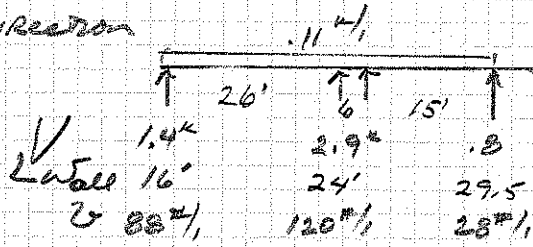 Direction
.11 k/,
26' 6 15'
V 1.4k 2.9k .8
Lwall 16' 24' 29.5
v 88#/, 120#/, 28#/,